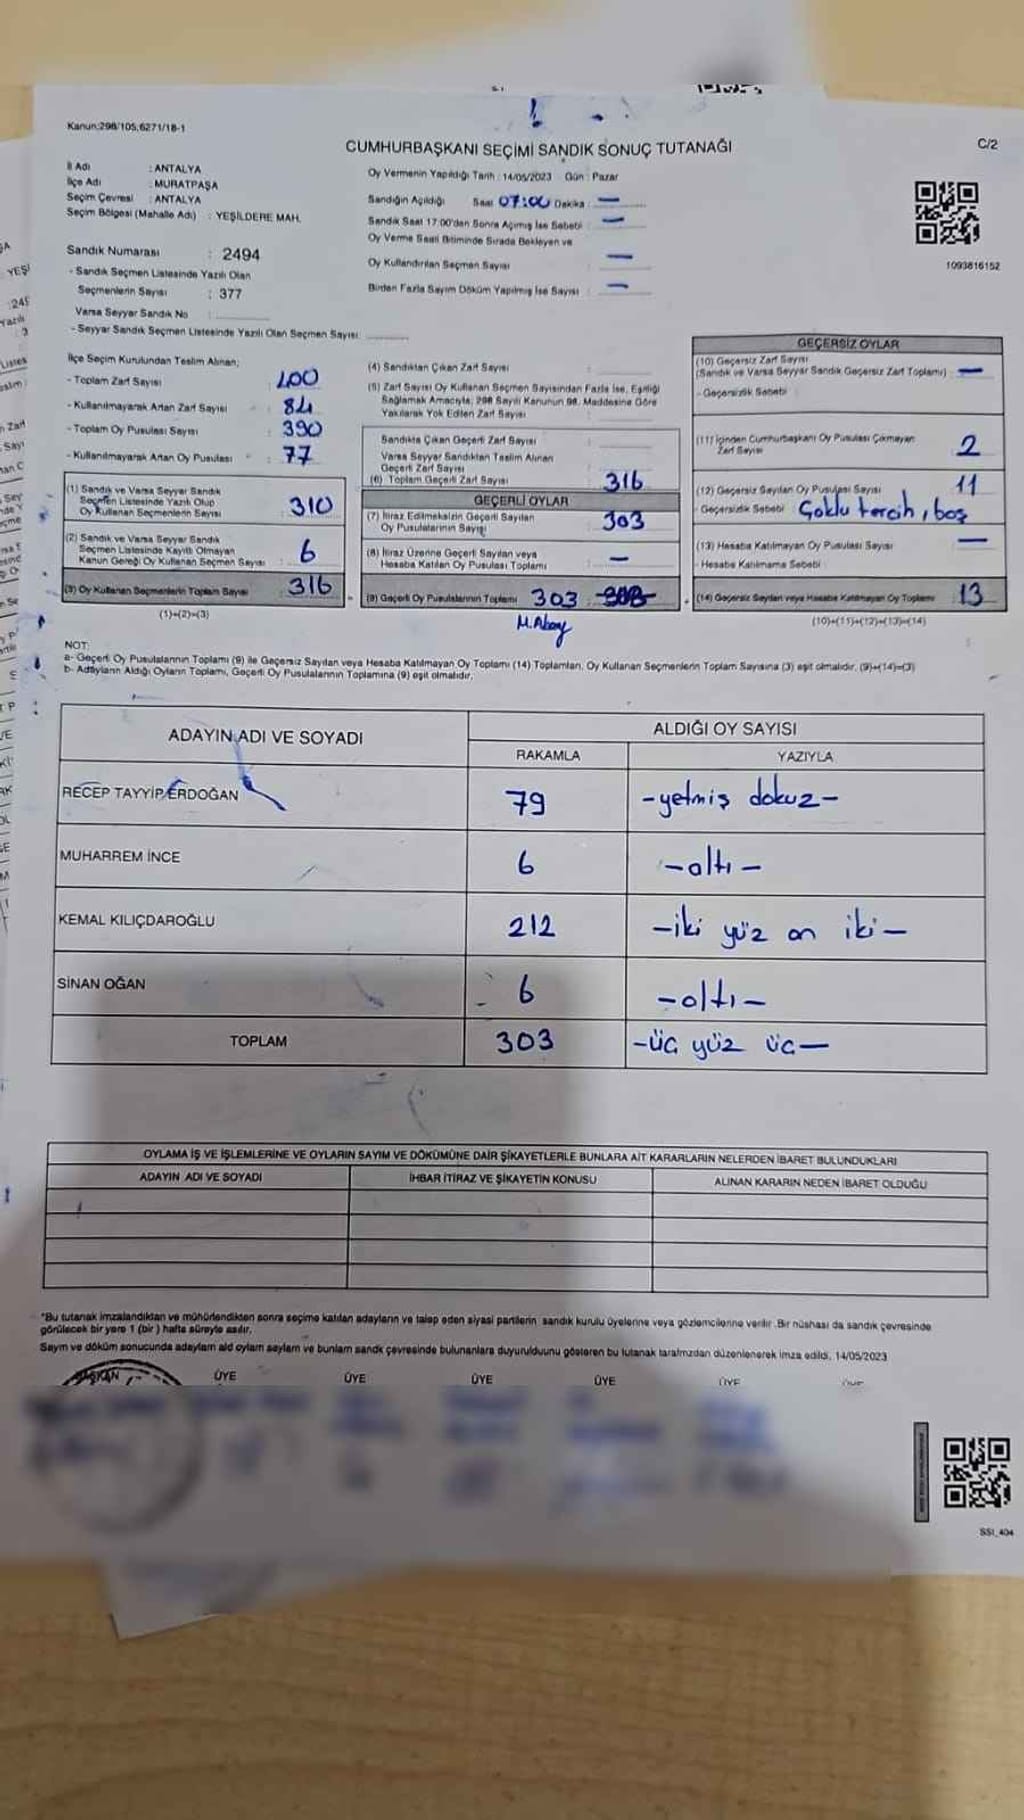 Kanun:298/105;6271/18-1
CUMHURBAŞKANI SEÇİMİ SANDIK SONUÇ TUTANAĞI
C/2
İl Adı : ANTALYA
İlçe Adı : MURATPAŞA
Seçim Çevresi : ANTALYA
Seçim Bölgesi (Mahalle Adı) : YEŞİLDERE MAH.
Sandık Numarası : 2494
- Sandık Seçmen Listesinde Yazılı Olan
Seçmenlerin Sayısı : 377
Varsa Seyyar Sandık No :
- Seyyar Sandık Seçmen Listesinde Yazılı Olan Seçmen Sayısı:
Oy Vermenin Yapıldığı Tarih : 14/05/2023 Gün : Pazar
Sandığın Açıldığı Saat 07:00 Dakika : —
Sandık Saat 17:00'den Sonra Açılmış İse Sebebi : —
Oy Verme Saati Bitiminde Sırada Bekleyen ve
Oy Kullandırılan Seçmen Sayısı : —
Birden Fazla Sayım Döküm Yapılmış İse Sayısı : —
1093816152
İlçe Seçim Kurulundan Teslim Alınan;
- Toplam Zarf Sayısı : 400
- Kullanılmayarak Artan Zarf Sayısı : 84
- Toplam Oy Pusulası Sayısı : 390
- Kullanılmayarak Artan Oy Pusulası : 77
(1) Sandık ve Varsa Seyyar Sandık
Seçmen Listesinde Yazılı Olup
Oy Kullanan Seçmenlerin Sayısı 310
(2) Sandık ve Varsa Seyyar Sandık
Seçmen Listesinde Kayıtlı Olmayan
Kanun Gereği Oy Kullanan Seçmen Sayısı 6
(3) Oy Kullanan Seçmenlerin Toplam Sayısı 316
(1)+(2)=(3)
(4) Sandıktan Çıkan Zarf Sayısı :
(5) Zarf Sayısı Oy Kullanan Seçmen Sayısından Fazla İse, Eşitliği
Sağlamak Amacıyla, 298 Sayılı Kanunun 98. Maddesine Göre
Yakılarak Yok Edilen Zarf Sayısı :
Sandıkta Çıkan Geçerli Zarf Sayısı
Varsa Seyyar Sandıktan Teslim Alınan
Geçerli Zarf Sayısı
(6) Toplam Geçerli Zarf Sayısı 316
GEÇERLİ OYLAR
(7) İtiraz Edilmeksizin Geçerli Sayılan
Oy Pusulalarının Sayısı 303
(8) İtiraz Üzerine Geçerli Sayılan veya
Hesaba Katılan Oy Pusulası Toplamı —
(9) Geçerli Oy Pusulalarının Toplamı 303
GEÇERSİZ OYLAR
(10) Geçersiz Zarf Sayısı
(Sandık ve Varsa Seyyar Sandık Geçersiz Zarf Toplamı) : —
- Geçersizlik Sebebi :
(11) İçinden Cumhurbaşkanı Oy Pusulası Çıkmayan
Zarf Sayısı 2
(12) Geçersiz Sayılan Oy Pusulası Sayısı 11
- Geçersizlik Sebebi : Çoklu tercih, boş
(13) Hesaba Katılmayan Oy Pusulası Sayısı —
- Hesaba Katılmama Sebebi
(14) Geçersiz Sayılan veya Hesaba Katılmayan Oy Toplamı 13
(10)+(11)+(12)+(13)=(14)
NOT:
a- Geçerli Oy Pusulalarının Toplamı (9) ile Geçersiz Sayılan veya Hesaba Katılmayan Oy Toplamı (14) Toplamları, Oy Kullanan Seçmenlerin Toplam Sayısına (3) eşit olmalıdır. (9)+(14)=(3)
b- Adayların Aldığı Oyların Toplamı, Geçerli Oy Pusulalarının Toplamına (9) eşit olmalıdır.
ADAYIN ADI VE SOYADI
ALDIĞI OY SAYISI
RAKAMLA YAZIYLA
RECEP TAYYİP ERDOĞAN 79 -yetmiş dokuz-
MUHARREM İNCE 6 -altı-
KEMAL KILIÇDAROĞLU 212 -iki yüz on iki-
SİNAN OĞAN 6 -altı-
TOPLAM 303 -üç yüz üç-
OYLAMA İŞ VE İŞLEMLERİNE VE OYLARIN SAYIM VE DÖKÜMÜNE DAİR ŞİKAYETLERLE BUNLARA AİT KARARLARIN NELERDEN İBARET BULUNDUKLARI
ADAYIN ADI VE SOYADI İHBAR İTİRAZ VE ŞİKAYETİN KONUSU ALINAN KARARIN NEDEN İBARET OLDUĞU
*Bu tutanak imzalandıktan ve mühürlendikten sonra seçime katılan adayların ve talep eden siyasi partilerin sandık kurulu üyelerine veya gözlemcilerine verilir. Bir nüshası da sandık çevresinde
görülecek bir yere 1 (bir) hafta süreyle asılır.
Sayım ve döküm sonucunda adayların ald oyların sayıların ve bunların sandık çevresinde bulunanlara duyurulduunu gösteren bu tutanak tarafımızdan düzenlenerek imza edildi. 14/05/2023
BAŞKAN ÜYE ÜYE ÜYE ÜYE ÜYE
SSI_404